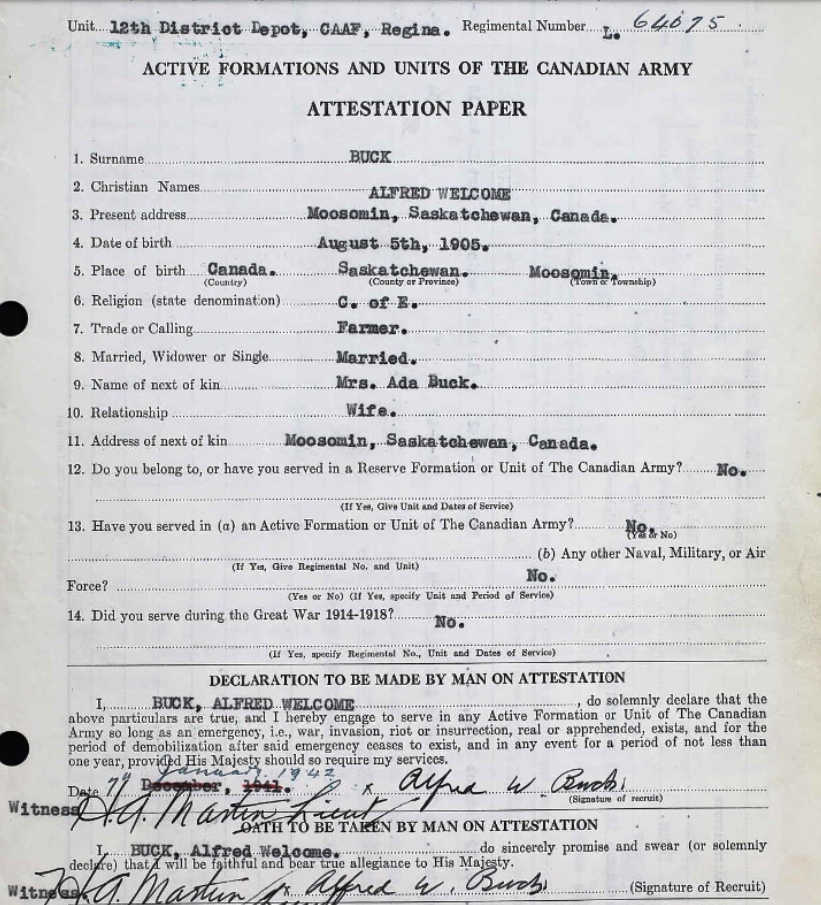 Unit 12th District Depot, CAAF, Regina. Regimental Number L. 64675
ACTIVE FORMATIONS AND UNITS OF THE CANADIAN ARMY
ATTESTATION PAPER
1. Surname BUCK
2. Christian Names ALFRED WELCOME
3. Present address Moosomin, Saskatchewan, Canada.
4. Date of birth August 5th, 1905.
5. Place of birth Canada. Saskatchewan. Moosomin.
(Country) (County or Province) (Town or Township)
6. Religion (state denomination) C. of E.
7. Trade or Calling Farmer.
8. Married, Widower or Single Married.
9. Name of next of kin Mrs. Ada Buck.
10. Relationship Wife.
11. Address of next of kin Moosomin, Saskatchewan, Canada.
12. Do you belong to, or have you served in a Reserve Formation or Unit of The Canadian Army? No.
(If Yes, Give Unit and Dates of Service)
13. Have you served in (a) an Active Formation or Unit of The Canadian Army? No.
(Yes or No)
(b) Any other Naval, Military, or Air
(If Yes, Give Regimental No. and Unit)
Force? No.
(Yes or No) (If Yes, specify Unit and Period of Service)
14. Did you serve during the Great War 1914-1918? No.
(If Yes, specify Regimental No., Unit and Dates of Service)
DECLARATION TO BE MADE BY MAN ON ATTESTATION
I, BUCK, ALFRED WELCOME, do solemnly declare that the
above particulars are true, and I hereby engage to serve in any Active Formation or Unit of The Canadian
Army so long as an emergency, i.e., war, invasion, riot or insurrection, real or apprehended, exists, and for the
period of demobilization after said emergency ceases to exist, and in any event for a period of not less than
one year, provided His Majesty should so require my services.
January 1942
Date December, 1941. x Alfred W. Buck
(Signature of recruit)
Witness H.A. Martin Lieut
OATH TO BE TAKEN BY MAN ON ATTESTATION
I, BUCK, Alfred Welcome. do sincerely promise and swear (or solemnly
declare) that I will be faithful and bear true allegiance to His Majesty.
Witness H.A. Martin x Alfred W. Buck (Signature of Recruit)